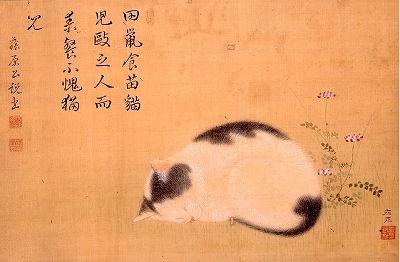 田鼠食苗貓
兒毆之人而
素餐不愧猫
兒
藤原公説書